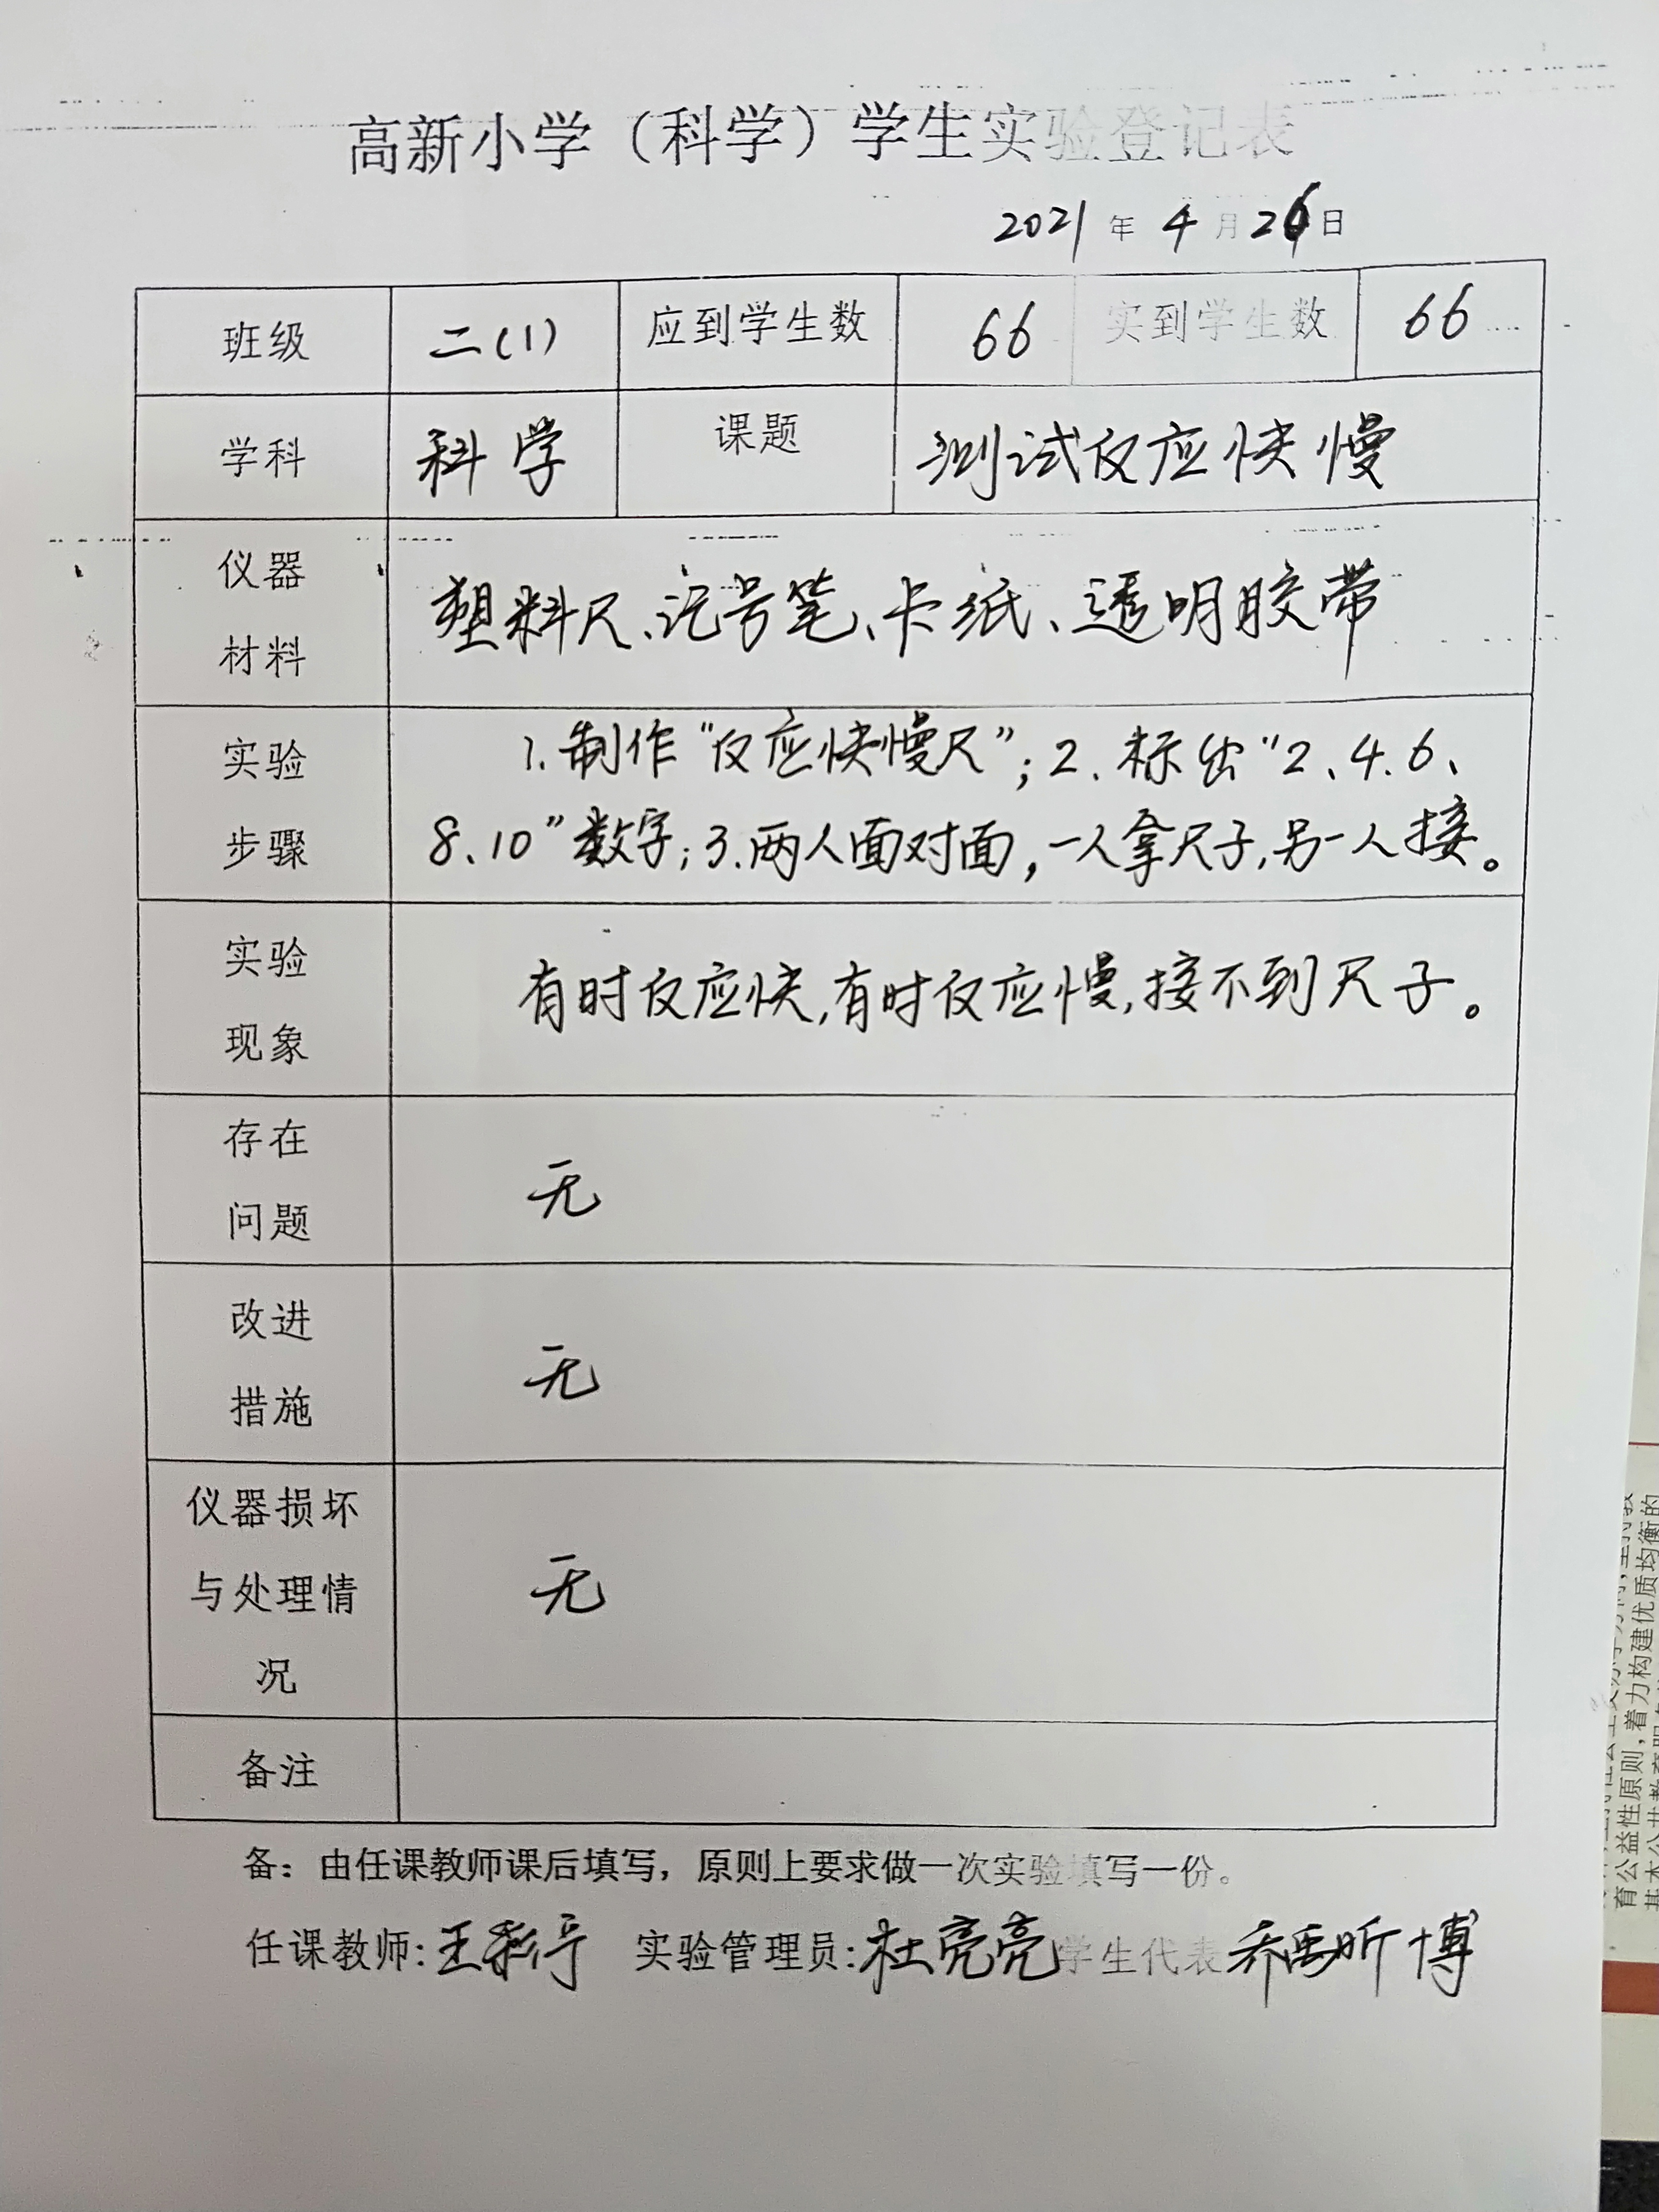 高新小学（科学）学生实验登记表
2021年4月26日
班级 二(1) 应到学生数 66 实到学生数 66
学科 科学 课题 测试反应快慢
仪器
材料
塑料尺、记号笔、卡纸、透明胶带
实验
步骤
1.制作“反应快慢尺”；2.标出“2、4、6、
8、10”数字；3.两人面对面，一人拿尺子，另一人接。
实验
现象
有时反应快，有时反应慢，接不到尺子。
存在
问题
无
改进
措施
无
仪器损坏
与处理情
况
无
备注
备：由任课教师课后填写，原则上要求做一次实验填写一份。
任课教师：王 实验管理员：杜亮亮 学生代表 乔禹昕博
育公益性原则，着力构建优质均衡的